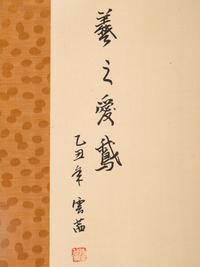 羲之愛鵞
乙丑年 雲茜